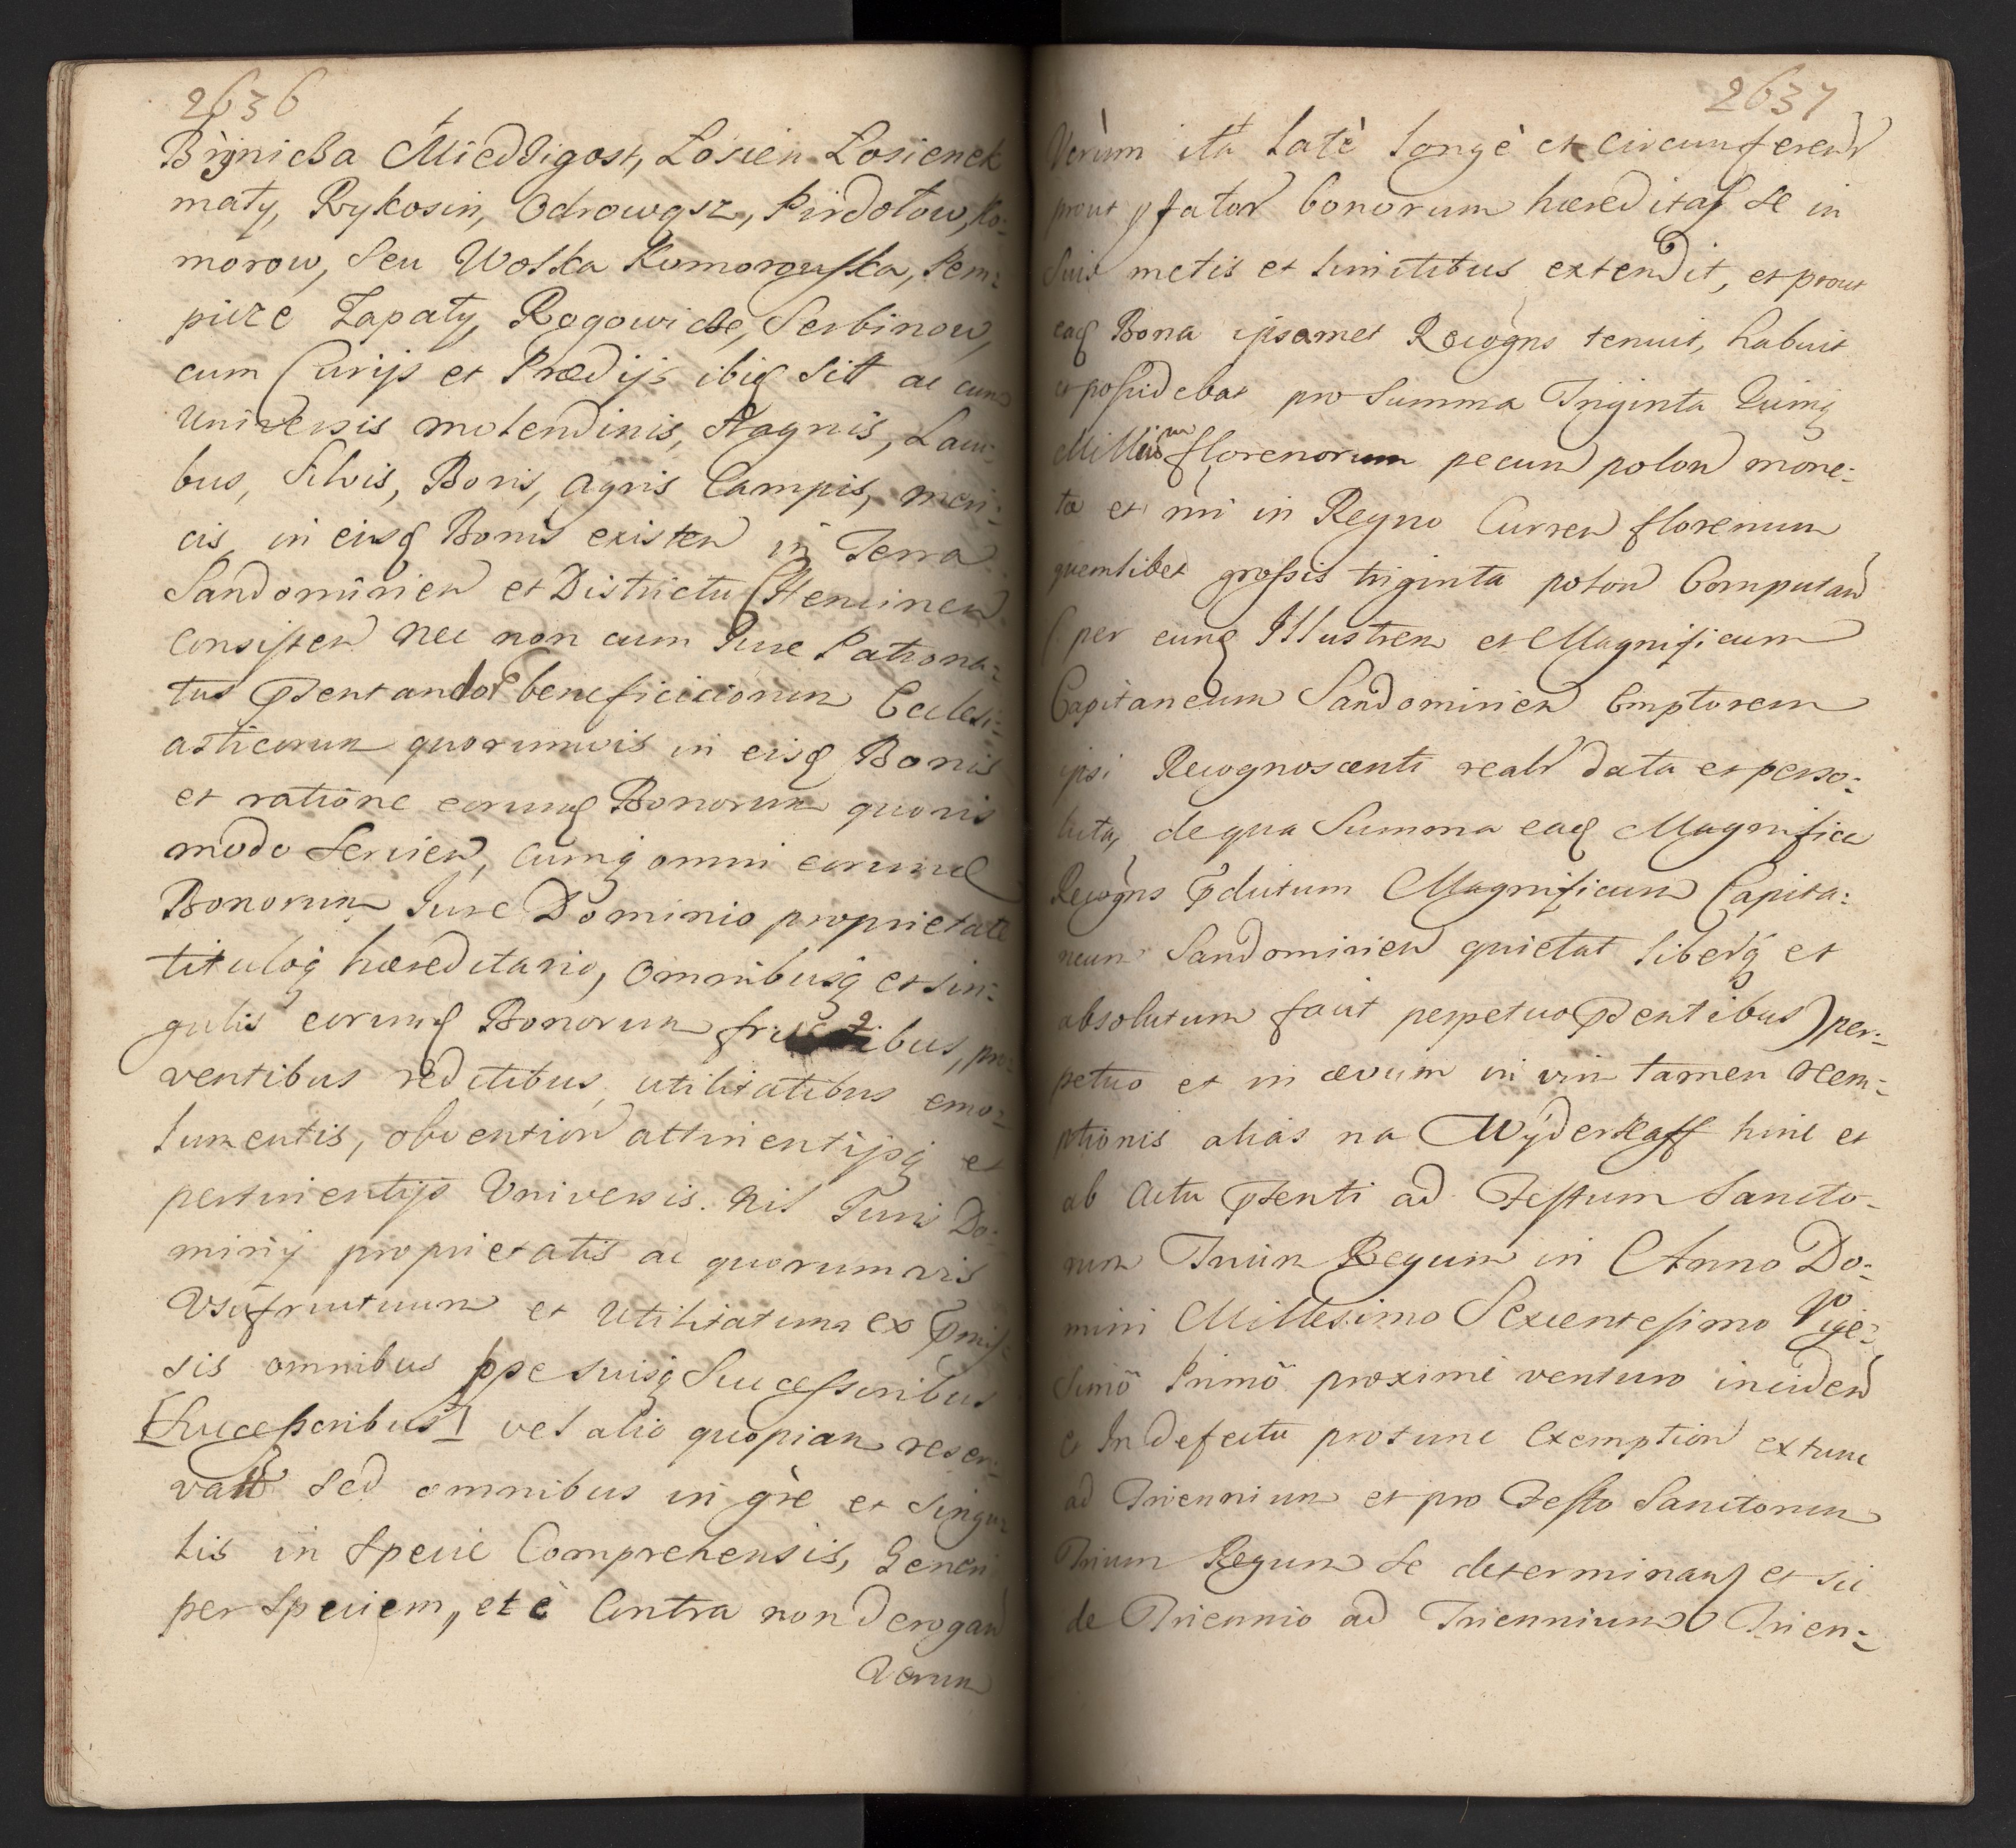 2636
Brÿnicza Mieddigost, Łosien Łosienek
małÿ, Rykosin, Odrowąsz, Pirdołow, Ko=
morow, seu Wolka Komorowska, Pem=
picze Zapały, Rogowice, Serbinow,
cum Curijs et Prædijs ibiq sitt ac cum
Universis molendinis, stagnis, Lacu=
bus, Silvis, Boris, agris Campis, meri=
cis in eisq Bonis existen in Terra
Sandomirien et Districtu Chencinen
consisten nec non cum Jure Patrona=
tus pdentandor beneficiorum Ecclesi=
asticorum quorumvis in eisq Bonis
et ratione eorumq Bonorum quovis
modo servien, cumq omni eorumd
Bonorum Jure Dominio proprietate
tituloq hæreditario, omnibusq et sin=
gulis eorumq Bonorum fructibus, pro=
ventibus reditibus, utilitatibus emo=
lumentis, obvention attinentijsq et
pertinentijs Universis. Nil Juris Do=
minij proprietatis ac quorumvis
Usufructuum et utilitatum ex pmis=
sis omnibus pse suisq Successoribus
[Successoribus] vel alio quopiam reser=
vatt sed omnibus in gre et singu=
lis in Specie Comprehensis, Generi
per Speciem, et è Contra non derogan
Verum
2637
Verùm ità latè longè et circumferenr
prout pfator bonorum hæreditas se in
suis metis et limitibus extendit, et prout
eaq Bona ipsamet Recogns tenuit, habuit
et possidebat pro Summa Triginta Quinq
Millium florenorum pecun polon mone=
tæ et nri in Regno Curren florenum
quemlibet grossis triginta polon Computan
(per eunq Illustrem et Magnificum
Capitaneum Sandomirien Emptorem
ipsi Recognoscenti realr data et perso=
luta, de qua Summa eaq Magnifica
Recogns pdictum Magnificum Capita=
neum Sandomirien quietat liberq et
absolutum facit perpetuo pdentibus) per=
petuo et in ævum in vim tamen reem=
ptionis alias na Wÿderkaff hinc et
ab Actu pdenti ad Festum Sancto=
rum Trium Regum in Anno Do=
mini Millesimo Sexcentesimo Vige=
simo Primo proxime venturo inciden
et In defectu protunc exemption extunc
ad Triennium et pro Festo Sanctorum
Trium Regum se determinans et sic
de Triennio ad Triennium Trien=